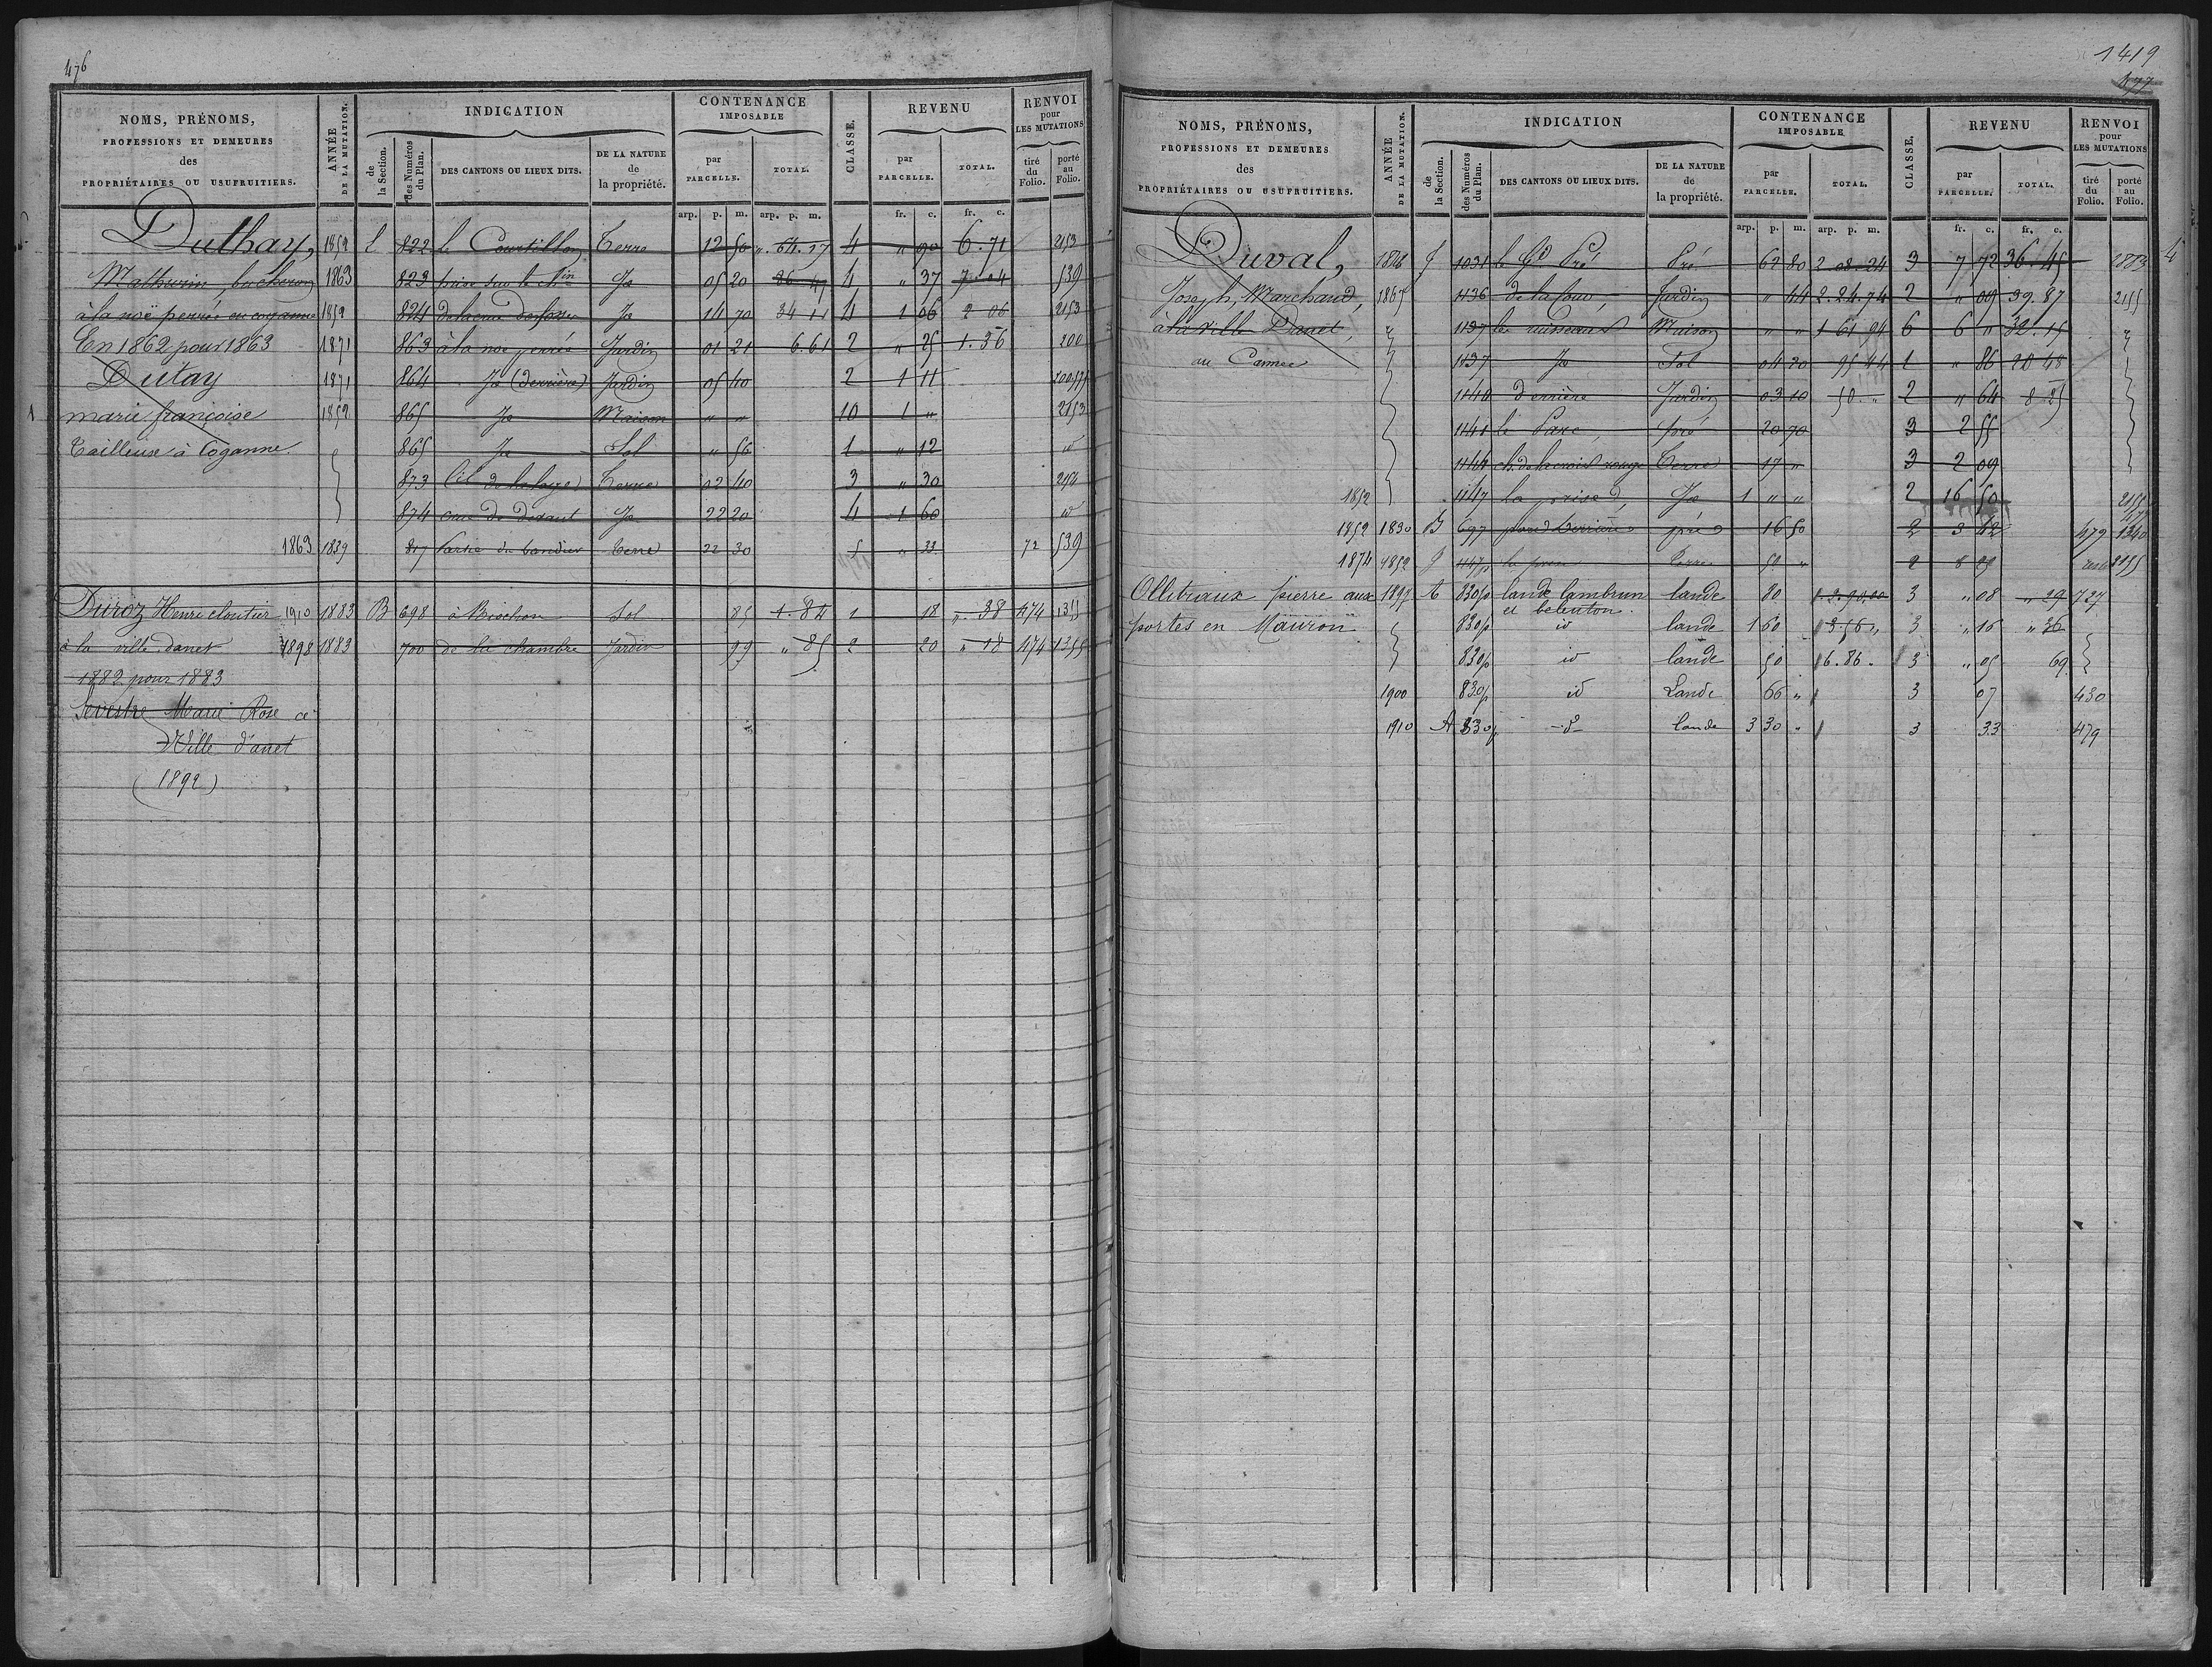 476
NOMS, PRÉNOMS,
PROFESSIONS ET DEMEURES
des
PROPRIÉTAIRES OU USUFRUITIERS.
ANNÉE
DE LA MUTATION.
INDICATION
de
la Section.
des Numéros
du Plan.
DES CANTONS OU LIEUX DITS.
DE LA NATURE
de
la propriété.
CONTENANCE
IMPOSABLE
par
PARCELLE.
TOTAL.
CLASSE.
REVENU
par
PARCELLE.
TOTAL.
RENVOI
pour
LES MUTATIONS
tiré
du
Folio.
porté
au
Folio.
arp. p. m. arp. p. m. fr. c. fr. c.
Duthay, 1852 822 le Courtillon Terre 12 50 " 64.17 4 " 90 6.71 2153
Mathurin, bucheron 1863 823 Je 05 20 4 " 37 7.04 539
à la noë perrée en coganne 1852 824 Je 14 70 34 11 4 1 06 2 06 2153
En 1862 pour 1863 1871 863 à la noe perrée Jardin 01 21 6.61 2 " 25 1.36 200
Dutay 1871 864 Je (derrière) Jardin 05 40 2 1 11
marie françoise 1852 865 Je Maison " " 10 1 " 2153
Tailleuse à Coganne. 865 Je Sol " 56 1 " 12 id
873 Terre 02 40 3 " 30
874 Je 22 20 4 1 60 id
1863 1839 817 Terre 22 30 5 " 33 72 539
Duroz Henri cloutier 1910 1883 B 698 à Bischon Sol 85 1.84 1 18 " 38 474
à la ville danet 1898 1883 700 de la chambre Jardin 99 " 85 2 20 " 18 474 1355
1882 pour 1883
Sevestre Marie Rose
Ville d'anet
(1892)
1419
477
NOMS, PRÉNOMS,
PROFESSIONS ET DEMEURES
des
PROPRIÉTAIRES OU USUFRUITIERS.
ANNÉE
DE LA MUTATION.
INDICATION
de
la Section.
des Numéros
du Plan.
DES CANTONS OU LIEUX DITS.
DE LA NATURE
de
la propriété.
CONTENANCE
IMPOSABLE
par
PARCELLE.
TOTAL.
CLASSE.
REVENU
par
PARCELLE.
TOTAL.
RENVOI
pour
LES MUTATIONS
tiré
du
Folio.
porté
au
Folio.
arp. p. m. arp. p. m. fr. c. fr. c.
Duval, J 1031 le Gd Pré Pré 62 80 2 08 24 3 7 72 36.45
Joseph, Marchand, 1867 1136 Jardin " 44 2.24.74 2 " 09 39.87 2155
à la ville Danet, 1137 le ruisseau Maison " " 1 61 94 6 6 " 32.15
au Cannee 1137 Je Sol 04 20 95 44 1 " 86 20 48
1140 Derrière Jardin 03 10 50 " 2 " 64 8 25
1141 le Parc, pré 20 90 3 2 55
1144 ch. de la croix rouge Terre 17 " 3 2 09
1852 1147 la prise Je 1 " " 2 16 50 2155
1852 1830 B 697 pré 16 50 2 3 42 479 1340
1874 1852 J 1147p Terre 50 " 2 8 25 2155
Ollitriaux pierre aux 1897 A 830p lande lambrun lande 80 3 " 08 " 29 727
et beluton.
portes en Mauron 830p id lande 1 60 3.56 3 " 16 " 36
830p id lande 50 6.86. 3 " 05 69
1900 830p id Lande 66 " 3 07 430
1910 A 830p d lande 3 30 " 3 33 479